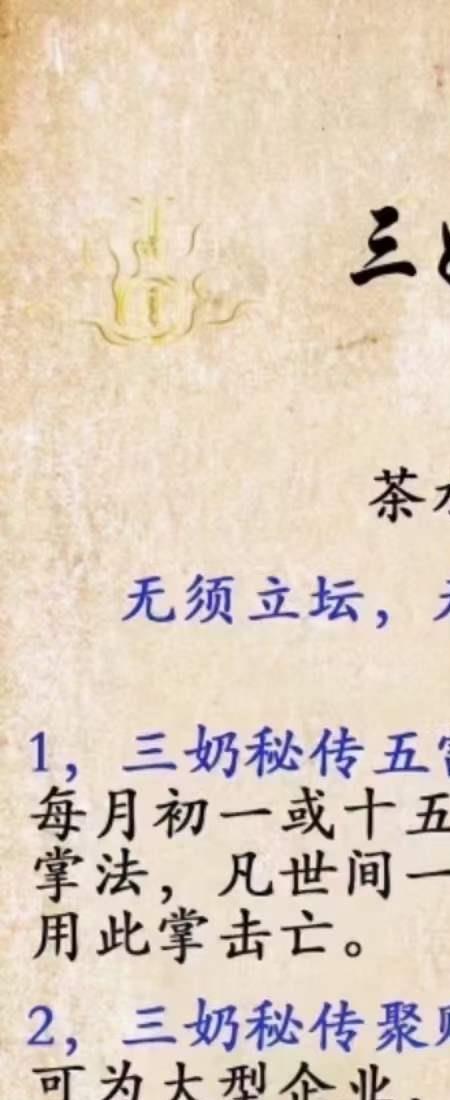 三
茶
无须立坛，
1，三奶秘传五
每月初一或十五
掌法，凡世间一
用此掌击亡。
2，三奶秘传聚
可为大型企业，